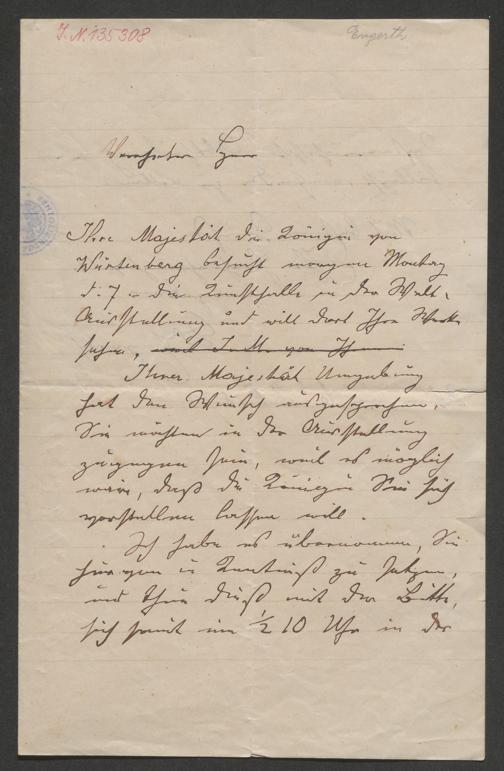 I. N. 135308
Engerth
Verehrter Herr
Ihre Majestät die Königin von
Würtenberg besucht morgen Montag
d. 7. die Kunsthalle in der Welt-
Ausstellung und will dort Ihre Werke
sehen, und I. M. von Ihnen
Ihrer Majestät Umgebung
hat den Wunsch ausgesprochen,
Sie möchten in der Ausstellung
zugegen sein, weil es möglich
wäre, daß die Königin Sie sich
vorstellen lassen will.
Ich habe es übernommen, Sie
hievon in Kenntniß zu setzen,
und thue dieß mit der Bitte,
sich heute um ½ 10 Uhr in der